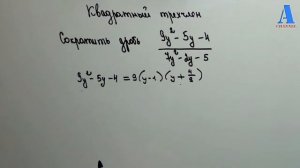 Квадратный трехчлен
A
CHANNEL
Сократить дробь 9y²-5y-4 / 7y²-2y-5
9y²-5y-4 = 9(y-1)(y+4/9)